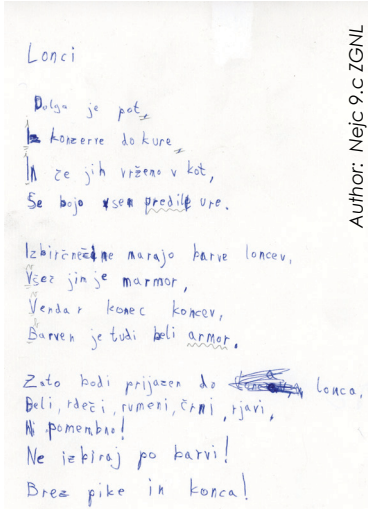 Lonci
Dolga je pot,
Iz konzerve do kure,
In če jih vržemo v kot,
Se bojo vsem predile ure.
Izbirčneži ne marajo barve loncev,
Všeč jim je marmor,
Vendar konec koncev,
Barven je tudi beli armor.
Zato bodi prijazen do lonca,
Beli, rdeči, rumeni, črni, rjavi,
Ni pomembno!
Ne izbiraj po barvi!
Brez pike in konca!
Author: Nejc 9.c ZGNL